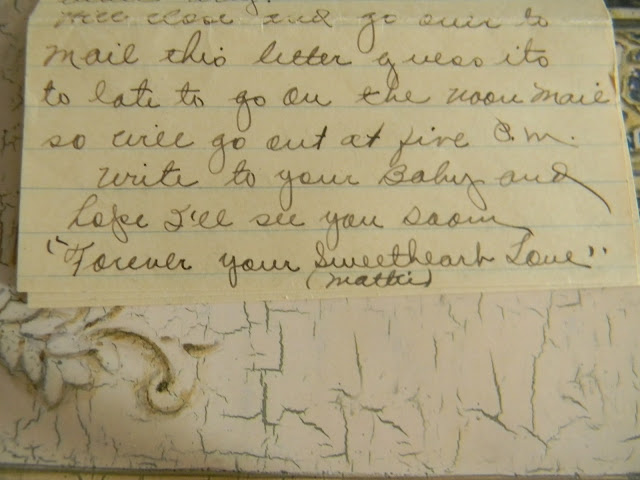 will close and go over to
mail this letter guess its
to late to go on the noon mail
so will go out at five P.m.
write to your Baby and
hope I'll see you soon
"Forever your Sweetheart Love"
(Mattie)